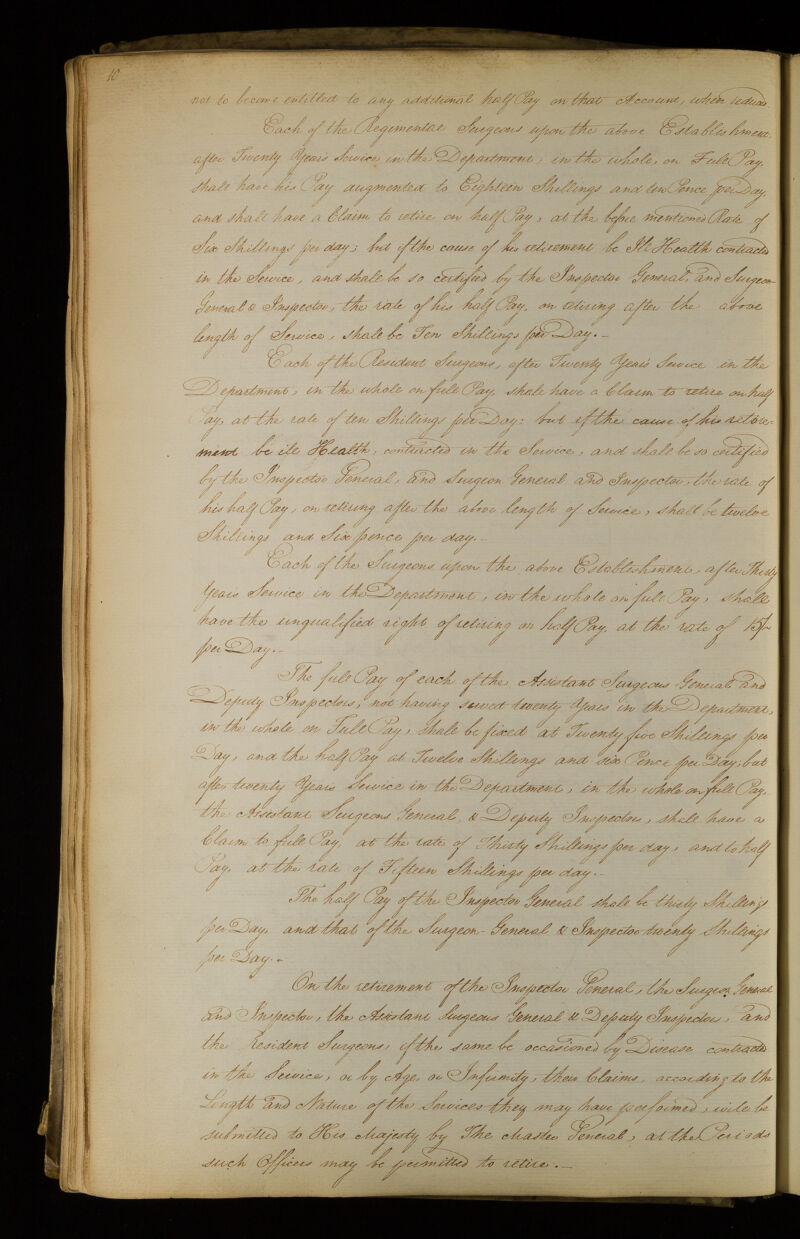 10
not to become entitled to any additional half Pay on that Account, when reduced.
Each of the Regimental Surgeons upon the above Establishment,
after Twenty Years Service in the Department, in the whole, on Full Pay,
shall have his Pay augmented to Eighteen Shillings and ten Pence per Day,
and shall have a Claim to retire on half Pay, at the before mentioned Rate of
Six Shillings per day; but if the cause of his retirement be Ill Health contracted
in the Service, and shall be so certified by the Inspector General, and Surgeon
General & Inspector, the rate of his half Pay, on retiring after the above
length of Service, shall be Ten Shillings per Day.—
Each of the Resident Surgeons, after Twenty Years Service in the
Department, in the whole on full Pay, shall have a Claim to retire on half
Pay, at the rate of ten Shillings per Day: but if the cause of his retire-
ment be ill Health, contracted in the Service, and shall be so certified
by the Inspector General, and Surgeon General and Inspector, the rate of
his half Pay, on retiring after the above length of Service, shall be twelve
Shillings and Six pence per day.—
Each of the Surgeons upon the above Establishment, after Thirty
Years Service in the Department, in the whole on full Pay, shall
have the unqualified right of retiring on half Pay, at the rate of 15/-
per Day.—
The full Pay of each of the Assistant Surgeons General and
Deputy Inspectors, not having served twenty Years in the Department,
in the whole on Full Pay, shall be fixed at Twenty five Shillings per
Day, and the half Pay at Twelve Shillings and six Pence per Day, but
after twenty Years Service in the Department, in the whole on full Pay,
the Assistant Surgeons General, & Deputy Inspectors, shall have a
Claim to full Pay, at the rate of Thirty Shillings per day, and to half
Pay, at the rate of Fifteen Shillings per day.—
The half Pay of the Inspector General shall be thirty Shillings
per Day, and that of the Surgeon-General & Inspector twenty Shillings
per Day.—
On the retirement of the Inspector General, the Surgeon General
and Inspector, the Assistant Surgeons General & Deputy Inspectors, and
the Resident Surgeons, if the same be occasioned by Disease contracted
in the Service, or by Age, or Infirmity, their Claims, according to the
Length and Nature of the Services they may have performed, will be
submitted to His Majesty by The Master General, at the Periods
such Officers may be permitted to retire.—